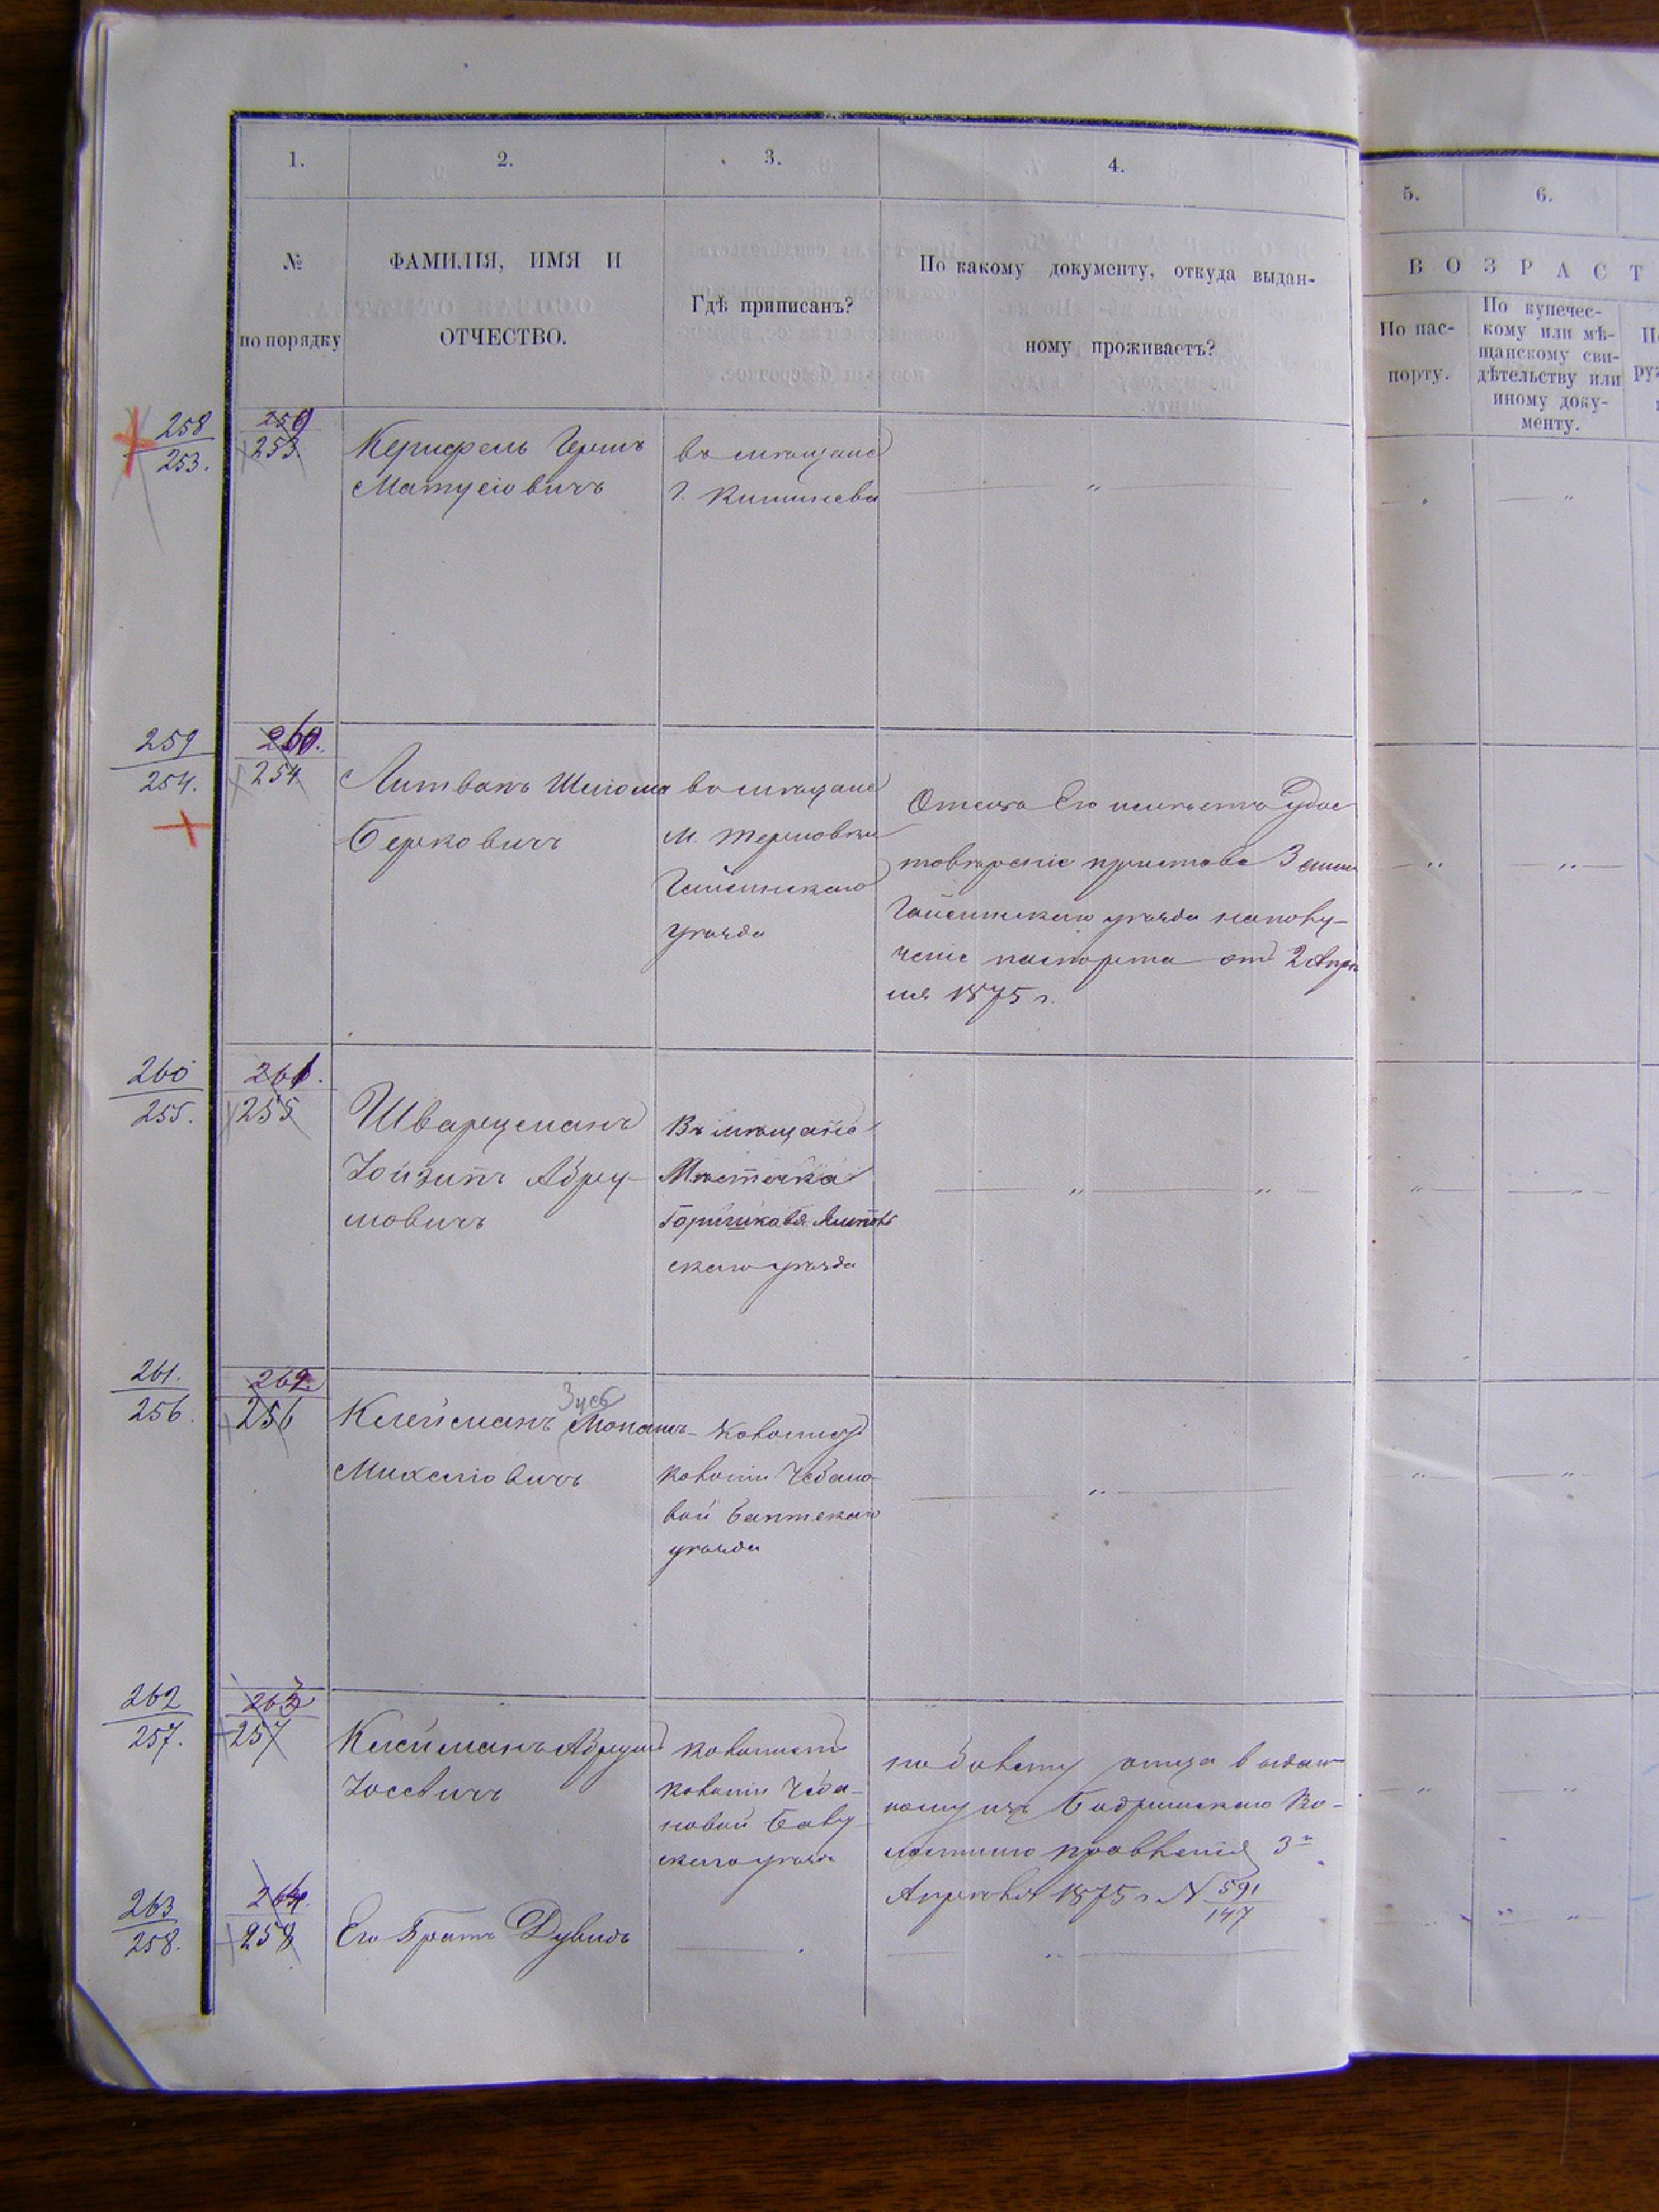 1.
2.
3.
4.
5.
6.
№
по порядку
ФАМИЛІЯ, ИМЯ И
ОТЧЕСТВО.
Гдѣ приписанъ?
По какому документу, откуда выдан-
ному проживаетъ?
ВОЗРАСТ
По пас-
порту.
По купечес-
кому или мѣ-
щанскому сви-
дѣтельству или
иному доку-
менту.
258
253.
259
253
Гершъ
Матусіовичъ
въ мѣщане
г. Кишинева
259
254.
260.
254
Литванъ Шліома
Берковичъ
въ мѣщане
м. Терновки
Гайсинскаго
уѣзда
Отца Его имѣетъ Удос
товѣреніе пристава 3 стана
Гайсинскаго уѣзда на полу-
ченіе паспорта отъ 2 Апрѣ
ля 1875 г.
260
255.
261.
255
Шварцманъ
Абрумовичъ
Въ мѣщане
Мѣстечка
скаго уѣзда
261.
256.
262
256
Клейманъ Монашъ
Зусь
Михеліовичъ
Колонистъ
колоніи Чебано
вой
уѣзда
262
257.
263
257
Клейманъ Абрумъ
Іосевичъ
колонистъ
колоніи Чеба-
новой
скаго уѣзда
отца выдан
ному изъ Во-
лостнаго правленія 3
Апрѣля 1875 г. № 591
147
263
258.
264.
258
Его Братъ Дувидъ